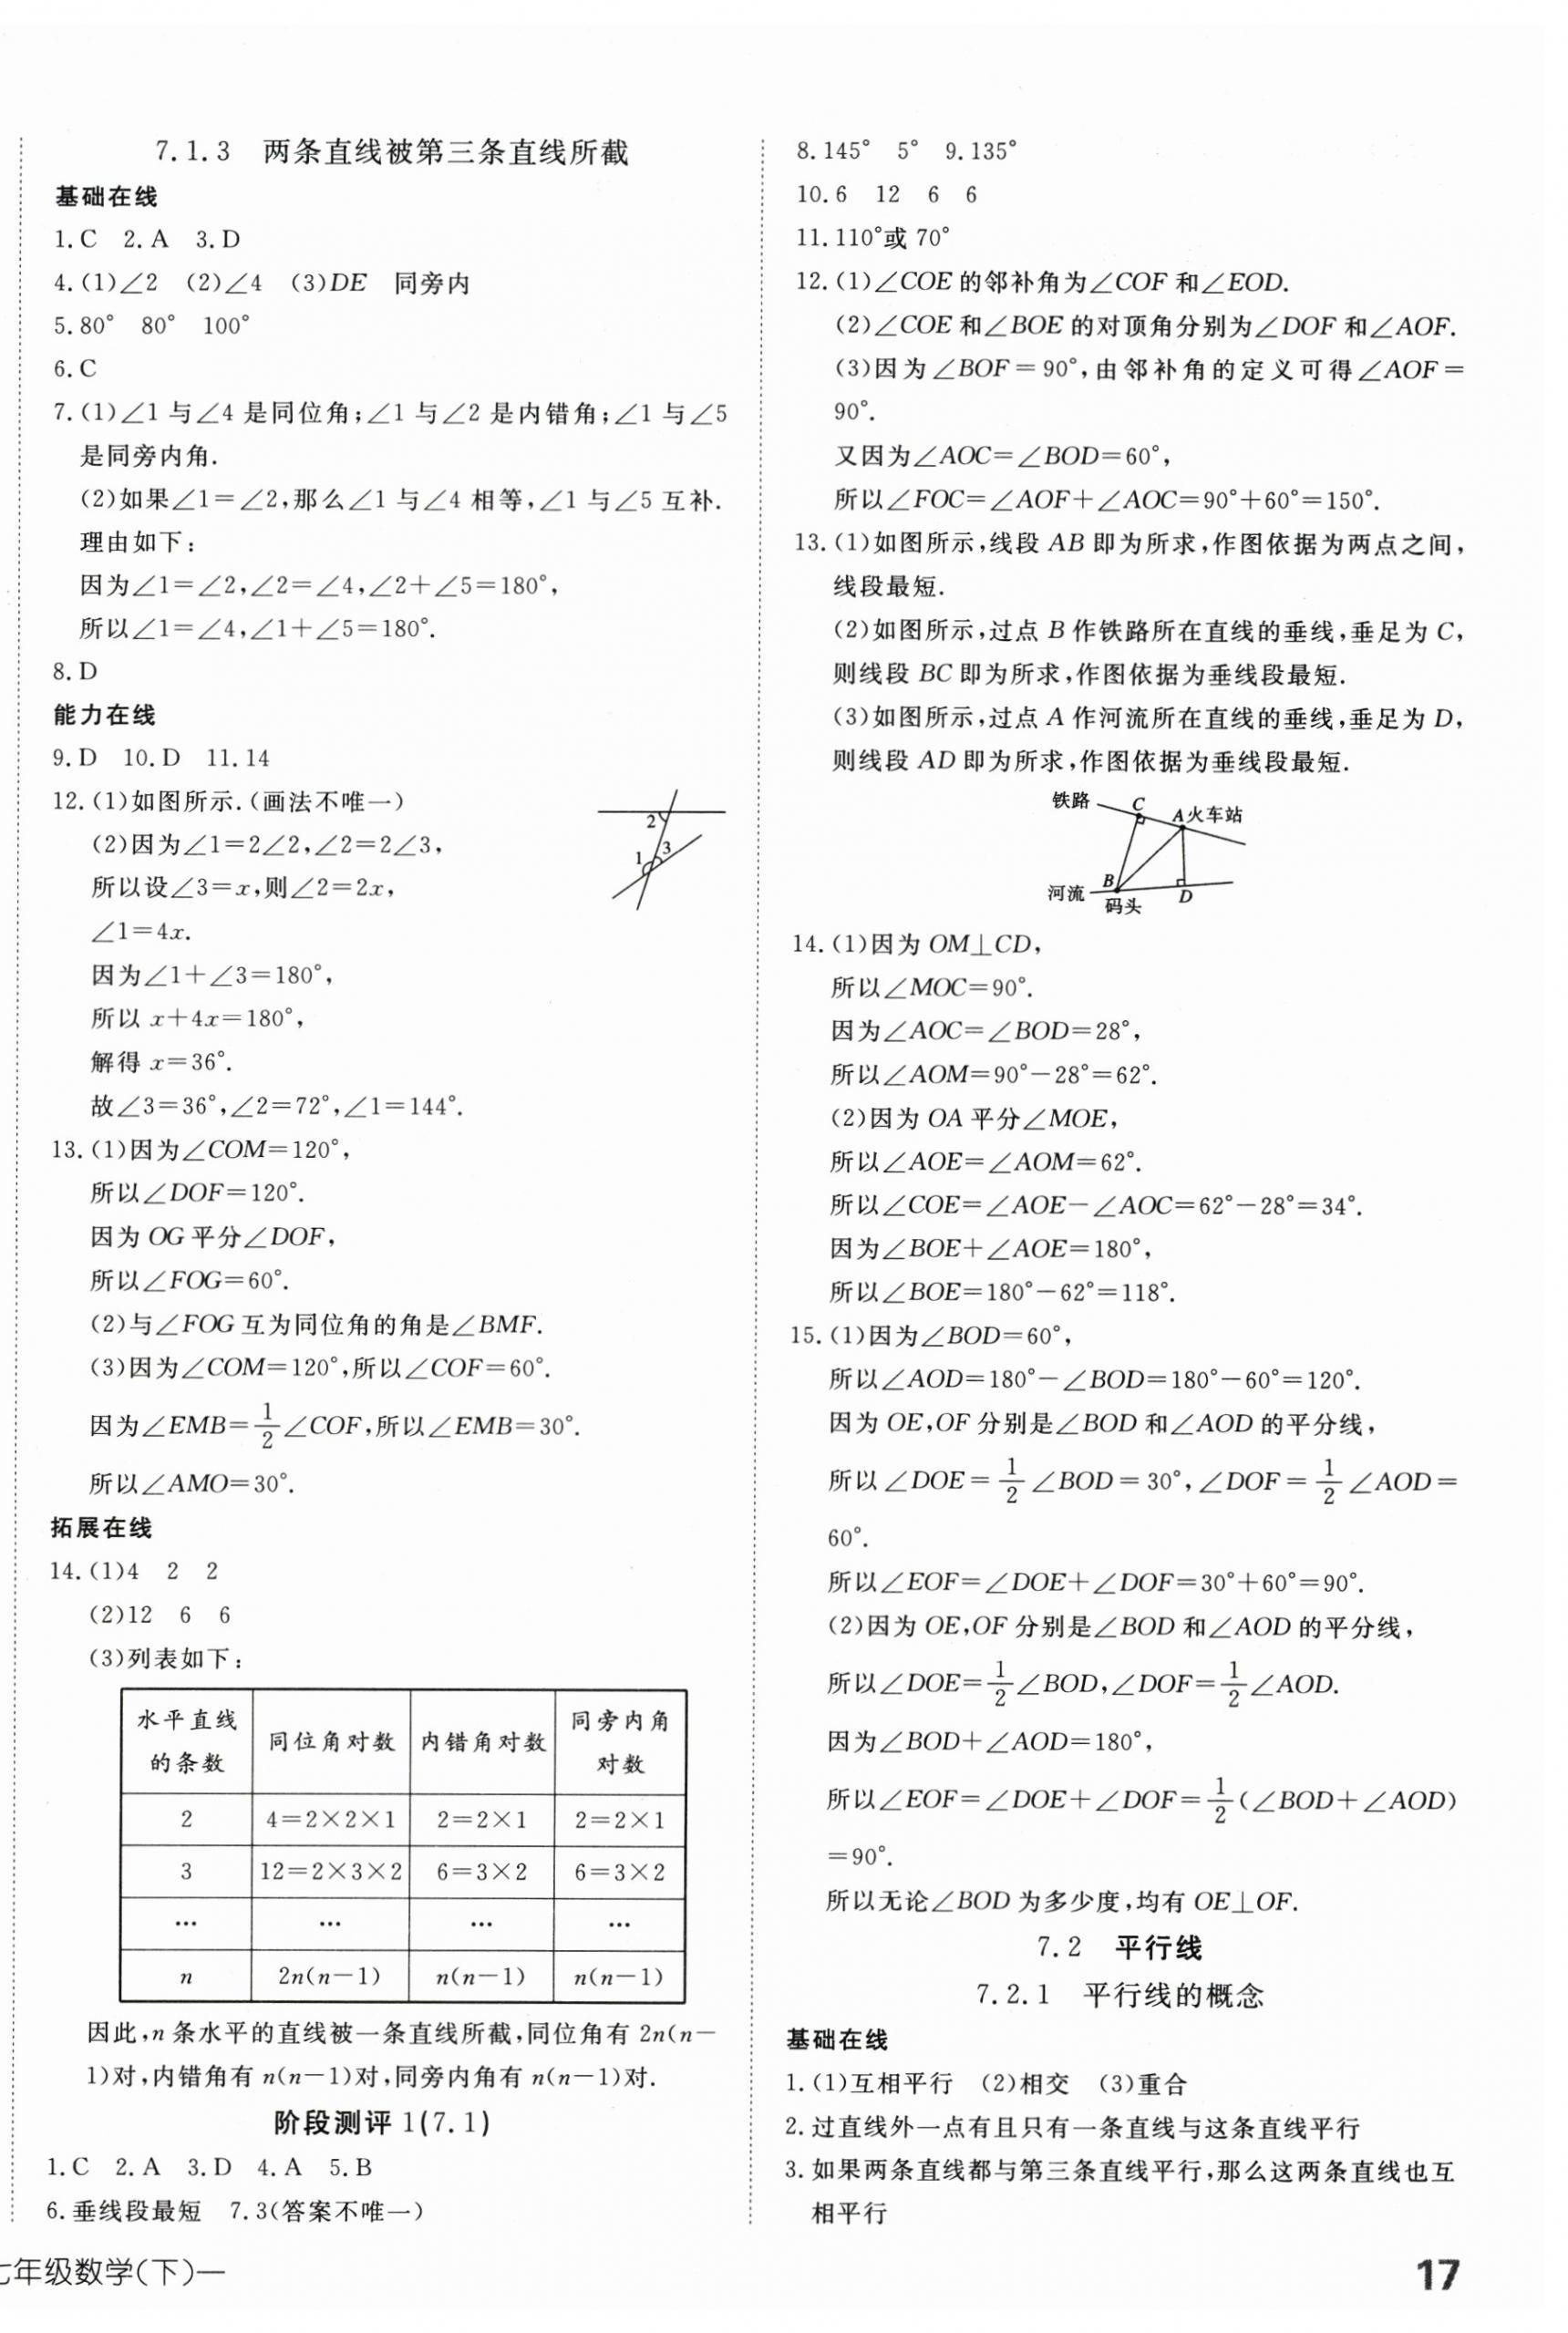 7.1.3　两条直线被第三条直线所截
基础在线
1.C　2.A　3.D
4.(1)∠2　(2)∠4　(3)DE　同旁内
5.80°　80°　100°
6.C
7.(1)∠1与∠4是同位角;∠1与∠2是内错角;∠1与∠5
是同旁内角.
(2)如果∠1=∠2,那么∠1与∠4相等,∠1与∠5互补.
理由如下:
因为∠1=∠2,∠2=∠4,∠2+∠5=180°,
所以∠1=∠4,∠1+∠5=180°.
8.D
能力在线
9.D　10.D　11.14
12.(1)如图所示.(画法不唯一)
(2)因为∠1=2∠2,∠2=2∠3,
所以设∠3=x,则∠2=2x,
∠1=4x.
因为∠1+∠3=180°,
所以x+4x=180°,
解得x=36°.
故∠3=36°,∠2=72°,∠1=144°.
2
1 3
13.(1)因为∠COM=120°,
所以∠DOF=120°.
因为OG平分∠DOF,
所以∠FOG=60°.
(2)与∠FOG互为同位角的角是∠BMF.
(3)因为∠COM=120°,所以∠COF=60°.
因为∠EMB=1/2∠COF,所以∠EMB=30°.
所以∠AMO=30°.
拓展在线
14.(1)4　2　2
(2)12　6　6
(3)列表如下:
水平直线的条数　同位角对数　内错角对数　同旁内角对数
2　4=2×2×1　2=2×1　2=2×1
3　12=2×3×2　6=3×2　6=3×2
…　…　…　…
n　2n(n-1)　n(n-1)　n(n-1)
因此,n条水平的直线被一条直线所截,同位角有2n(n-
1)对,内错角有n(n-1)对,同旁内角有n(n-1)对.
阶段测评1(7.1)
1.C　2.A　3.D　4.A　5.B
6.垂线段最短　7.3(答案不唯一)
8.145°　5°　9.135°
10.6　12　6　6
11.110°或70°
12.(1)∠COE的邻补角为∠COF和∠EOD.
(2)∠COE和∠BOE的对顶角分别为∠DOF和∠AOF.
(3)因为∠BOF=90°,由邻补角的定义可得∠AOF=
90°.
又因为∠AOC=∠BOD=60°,
所以∠FOC=∠AOF+∠AOC=90°+60°=150°.
13.(1)如图所示,线段AB即为所求,作图依据为两点之间,
线段最短.
(2)如图所示,过点B作铁路所在直线的垂线,垂足为C,
则线段BC即为所求,作图依据为垂线段最短.
(3)如图所示,过点A作河流所在直线的垂线,垂足为D,
则线段AD即为所求,作图依据为垂线段最短.
铁路 C A火车站
河流 B 码头 D
14.(1)因为OM⊥CD,
所以∠MOC=90°.
因为∠AOC=∠BOD=28°,
所以∠AOM=90°-28°=62°.
(2)因为OA平分∠MOE,
所以∠AOE=∠AOM=62°.
所以∠COE=∠AOE-∠AOC=62°-28°=34°.
因为∠BOE+∠AOE=180°,
所以∠BOE=180°-62°=118°.
15.(1)因为∠BOD=60°,
所以∠AOD=180°-∠BOD=180°-60°=120°.
因为OE,OF分别是∠BOD和∠AOD的平分线,
所以∠DOE=1/2∠BOD=30°,∠DOF=1/2∠AOD=
60°.
所以∠EOF=∠DOE+∠DOF=30°+60°=90°.
(2)因为OE,OF分别是∠BOD和∠AOD的平分线,
所以∠DOE=1/2∠BOD,∠DOF=1/2∠AOD.
因为∠BOD+∠AOD=180°,
所以∠EOF=∠DOE+∠DOF=1/2(∠BOD+∠AOD)
=90°.
所以无论∠BOD为多少度,均有OE⊥OF.
7.2　平行线
7.2.1　平行线的概念
基础在线
1.(1)互相平行　(2)相交　(3)重合
2.过直线外一点有且只有一条直线与这条直线平行
3.如果两条直线都与第三条直线平行,那么这两条直线也互
相平行
年级数学(下)一
17